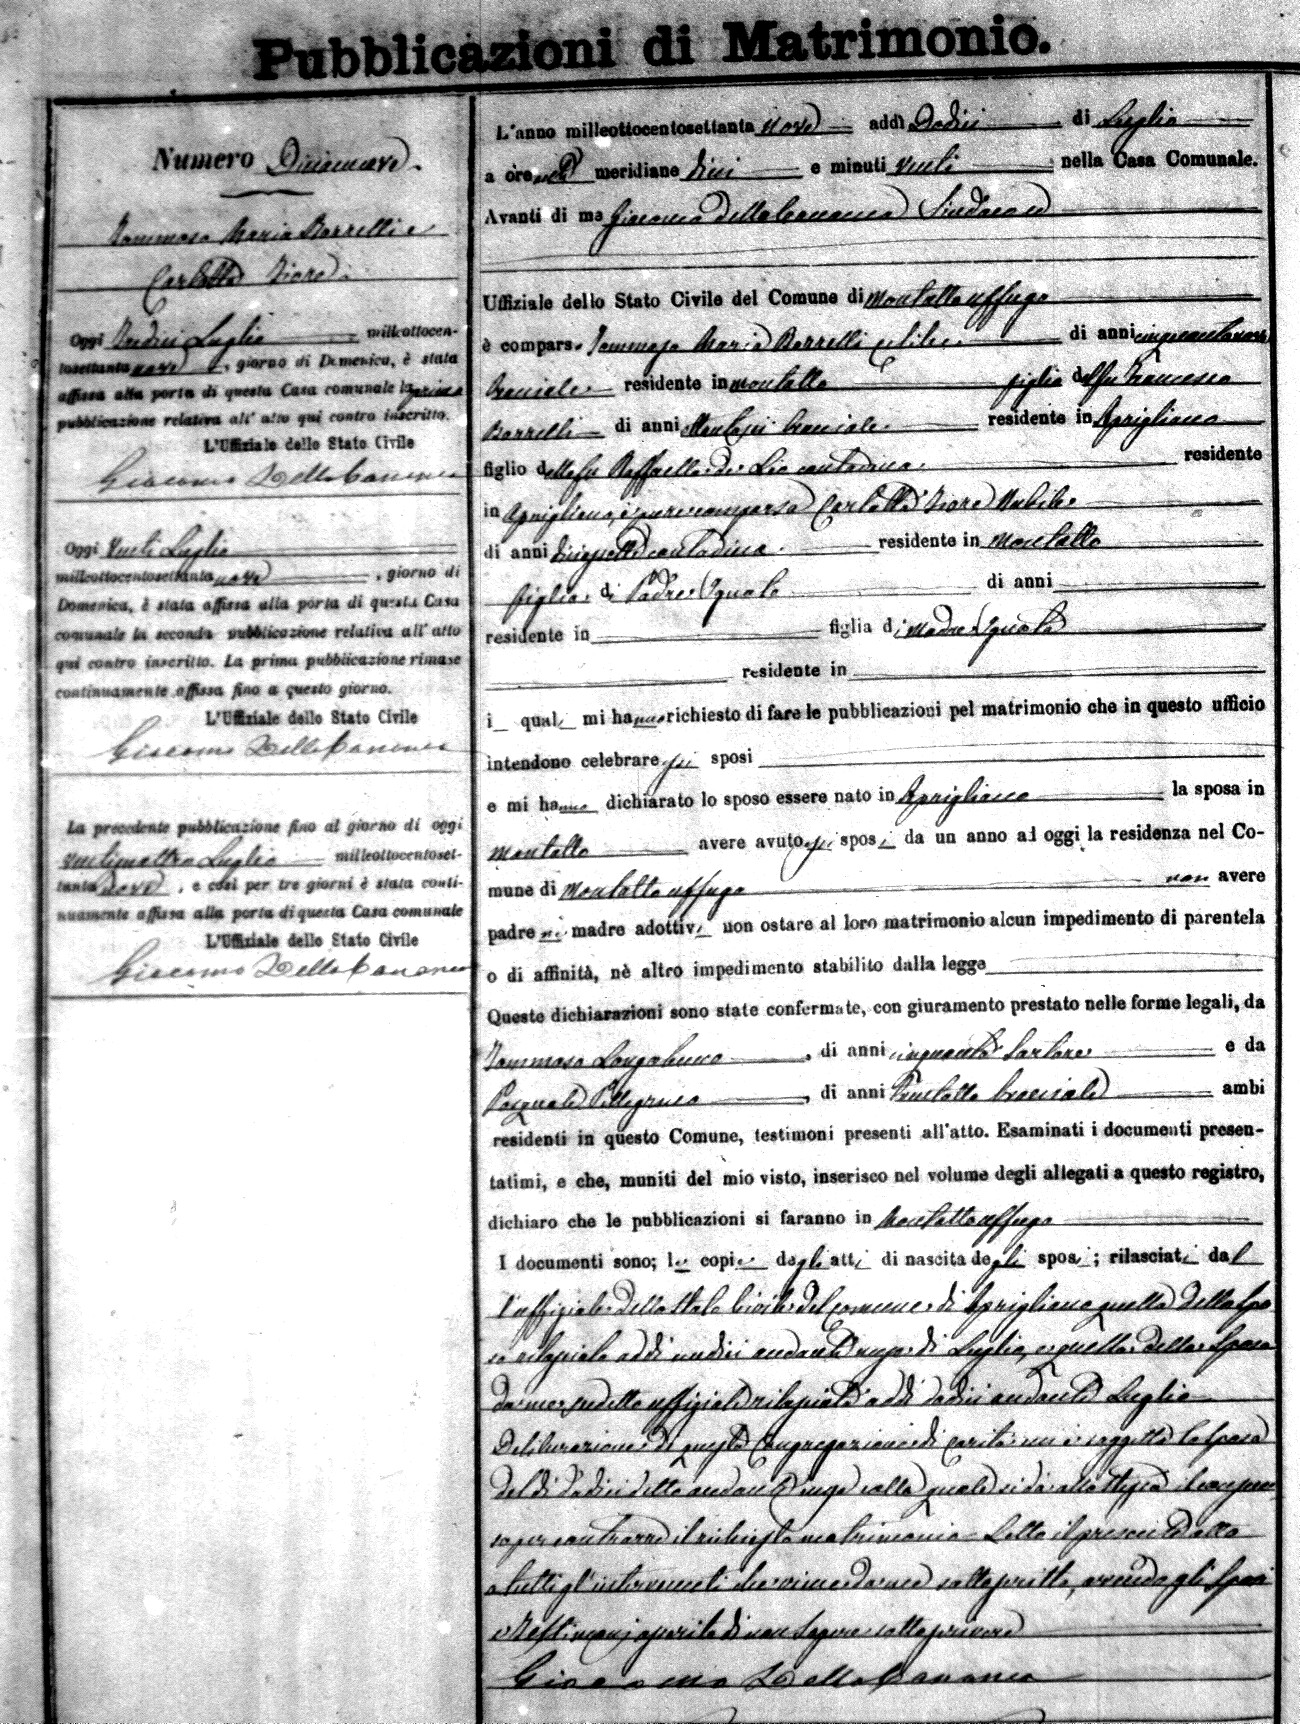 Pubblicazioni di Matrimonio.
Numero Diciannove.
Tommaso Maria Borrelli e
Carlotta Fiore.
Oggi Tredici Luglio millottocen-
tosettanta nove, giorno di Domenica, è stata
affissa alla porta di questa Casa comunale la prima
pubblicazione relativa all' atto qui contro inscritto.
L'Uffiziale dello Stato Civile
Giacomo Della Cananea
Oggi Venti Luglio
millottocentosettanta nove, giorno di
Domenica, è stata affissa alla porta di questa Casa
comunale la seconda pubblicazione relativa all' atto
qui contro inscritto. La prima pubblicazione rimase
continuamente affissa fino a questo giorno.
L'Uffiziale dello Stato Civile
Giacomo Della Cananea
La precedente pubblicazione fino al giorno di oggi
Ventiquattro Luglio milleottocentoset-
tanta nove, e così per tre giorni è stata conti-
nuamente affissa alla porta di questa Casa comunale
L'Uffiziale dello Stato Civile
Giacomo Della Cananea
L'anno milleottocentosettanta nove addì Dodici di Luglio
a ore meridiane dieci e minuti venti nella Casa Comunale.
Avanti di me Giacomo Della Cananea Sindaco ed
Uffiziale dello Stato Civile del Comune di Montalto uffugo
è compars. Tommaso Maria Borrelli celibe di anni
Bracciale residente in Montalto figlio del fu Francesco
Borrelli di anni bracciale residente in Aprigliano
figlio della fu Raffaella de Leo contadina residente
in Aprigliano, è pure comparsa Carlotta Fiore Nubile
di anni diciassette contadina residente in Montalto
figlia di Padre Ignoto di anni
residente in figlia di Madre Ignota
residente in
i quali mi hanno richiesto di fare le pubblicazioni pel matrimonio che in questo ufficio
intendono celebrare essi sposi
e mi hanno dichiarato lo sposo essere nato in Aprigliano la sposa in
Montalto avere avuto essi sposi da un anno ad oggi la residenza nel Co-
mune di Montalto uffugo non avere
padre nè madre adottivi non ostare al loro matrimonio alcun impedimento di parentela
o di affinità, nè altro impedimento stabilito dalla legge
Queste dichiarazioni sono state confermate, con giuramento prestato nelle forme legali, da
Tommaso Longobucco, di anni cinquanta Sartore e da
Pasquale Pellegrino, di anni bracciale ambi
residenti in questo Comune, testimoni presenti all'atto. Esaminati i documenti presen-
tatimi, e che, muniti del mio visto, inserisco nel volume degli allegati a questo registro,
dichiaro che le pubblicazioni si faranno in Montalto uffugo
I documenti sono; le copie degli atti di nascita degli sposi; rilasciati dal
l'uffiziale dello Stato Civile del Comune di Aprigliano quella dello Spo
so rilasciata addì undici andante mese di Luglio, e quella della Sposa
da me predetto uffiziale rilasciata addì dodici andante Luglio
Deliberazione di questa Congregazione di Carità cui è soggetta la sposa
del dì dodici detto andante mese colla quale si dà alla stessa il consen
so per contrarre il richiesto matrimonio. Letto il presente atto
a tutti gl'intervenuti viene da me sottoscritto, avendo gli Sposi
e Testimonj asserito di non sapere sottoscrivere
Giacomo Della Cananea